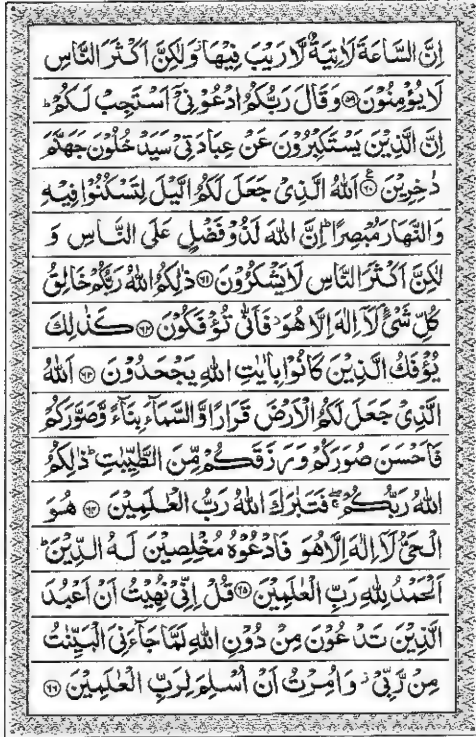 اِنَّ السَّاعَةَ لَاٰتِيَةٌ لَّا رَيْبَ فِيْهَا وَلٰكِنَّ اَكْثَرَ النَّاسِ
لَا يُؤْمِنُوْنَ ﴿۵۹﴾ وَقَالَ رَبُّكُمُ ادْعُوْنِيْٓ اَسْتَجِبْ لَكُمْ ؕ
اِنَّ الَّذِيْنَ يَسْتَكْبِرُوْنَ عَنْ عِبَادَتِيْ سَيَدْخُلُوْنَ جَهَنَّمَ
دٰخِرِيْنَ ﴿۶۰﴾ اَللّٰهُ الَّذِيْ جَعَلَ لَكُمُ الَّيْلَ لِتَسْكُنُوْا فِيْهِ
وَالنَّهَارَ مُبْصِرًا ؕ اِنَّ اللّٰهَ لَذُوْ فَضْلٍ عَلَى النَّاسِ وَ
لٰكِنَّ اَكْثَرَ النَّاسِ لَا يَشْكُرُوْنَ ﴿۶۱﴾ ذٰلِكُمُ اللّٰهُ رَبُّكُمْ خَالِقُ
كُلِّ شَيْءٍ لَآ اِلٰهَ اِلَّا هُوَ فَاَنّٰى تُؤْفَكُوْنَ ﴿۶۲﴾ كَذٰلِكَ
يُؤْفَكُ الَّذِيْنَ كَانُوْا بِاٰيٰتِ اللّٰهِ يَجْحَدُوْنَ ﴿۶۳﴾ اَللّٰهُ
الَّذِيْ جَعَلَ لَكُمُ الْاَرْضَ قَرَارًا وَّالسَّمَآءَ بِنَآءً وَّصَوَّرَكُمْ
فَاَحْسَنَ صُوَرَكُمْ وَرَزَقَكُمْ مِّنَ الطَّيِّبٰتِ ؕ ذٰلِكُمُ
اللّٰهُ رَبُّكُمْ ۖ فَتَبٰرَكَ اللّٰهُ رَبُّ الْعٰلَمِيْنَ ﴿۶۴﴾ هُوَ
الْحَيُّ لَآ اِلٰهَ اِلَّا هُوَ فَادْعُوْهُ مُخْلِصِيْنَ لَهُ الدِّيْنَ ؕ
اَلْحَمْدُ لِلّٰهِ رَبِّ الْعٰلَمِيْنَ ﴿۶۵﴾ قُلْ اِنِّيْ نُهِيْتُ اَنْ اَعْبُدَ
الَّذِيْنَ تَدْعُوْنَ مِنْ دُوْنِ اللّٰهِ لَمَّا جَآءَنِيَ الْبَيِّنٰتُ
مِنْ رَّبِّيْ وَاُمِرْتُ اَنْ اُسْلِمَ لِرَبِّ الْعٰلَمِيْنَ ﴿۶۶﴾